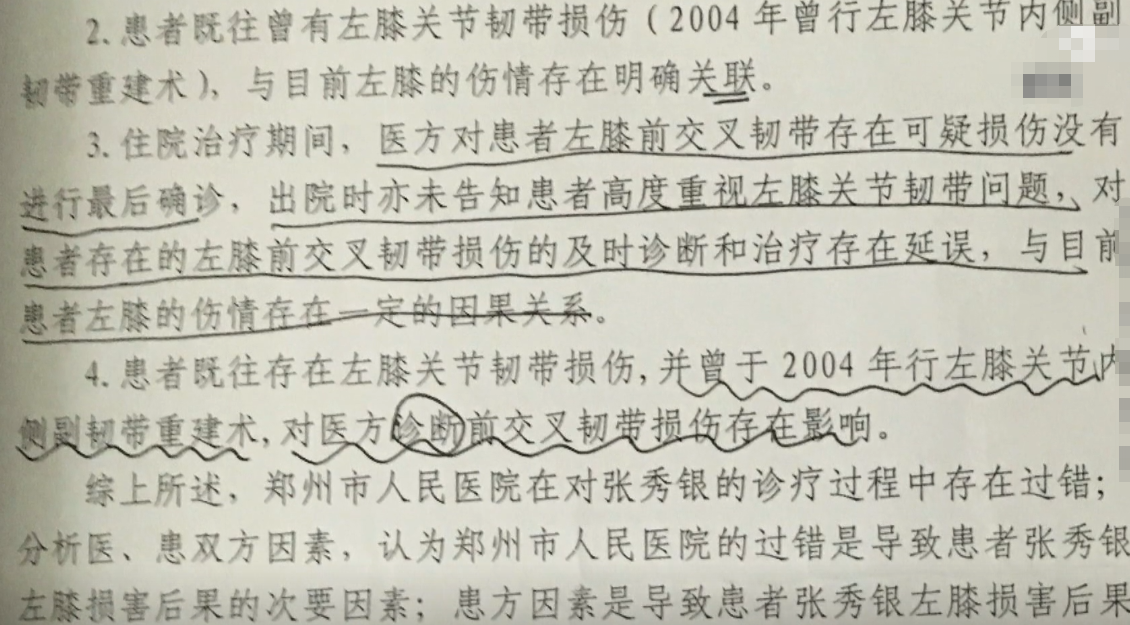 2. 患者既往曾有左膝关节韧带损伤（2004 年曾行左膝关节内侧副
韧带重建术），与目前左膝的伤情存在明确关联。
3. 住院治疗期间，医方对患者左膝前交叉韧带存在可疑损伤没有
进行最后确诊，出院时亦未告知患者高度重视左膝关节韧带问题，对
患者存在的左膝前交叉韧带损伤的及时诊断和治疗存在延误，与目前
患者左膝的伤情存在一定的因果关系。
4. 患者既往存在左膝关节韧带损伤,并曾于 2004 年行左膝关节内
侧副韧带重建术,对医方诊断前交叉韧带损伤存在影响。
综上所述，郑州市人民医院在对张秀银的诊疗过程中存在过错；
分析医、患双方因素，认为郑州市人民医院的过错是导致患者张秀银
左膝损害后果的次要因素；患方因素是导致患者张秀银左膝损害后果